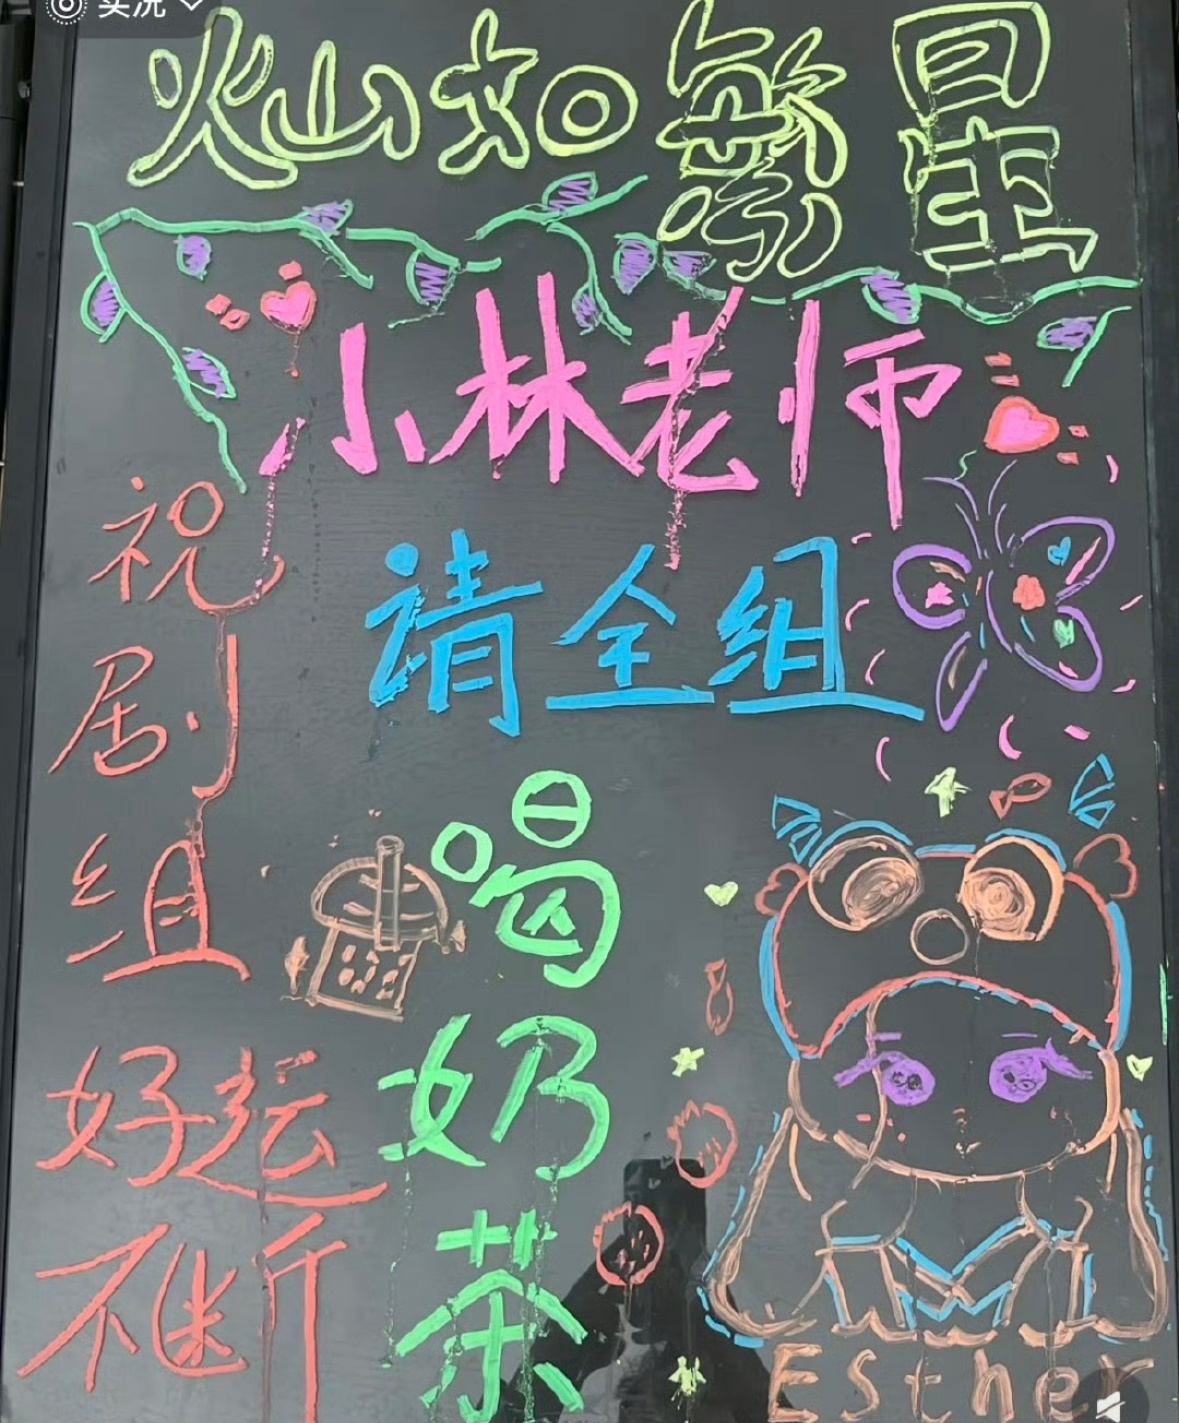 实况
灿如繁星
小林老师
请全组
喝
奶
茶
祝
剧
组
好运
不断
Esther